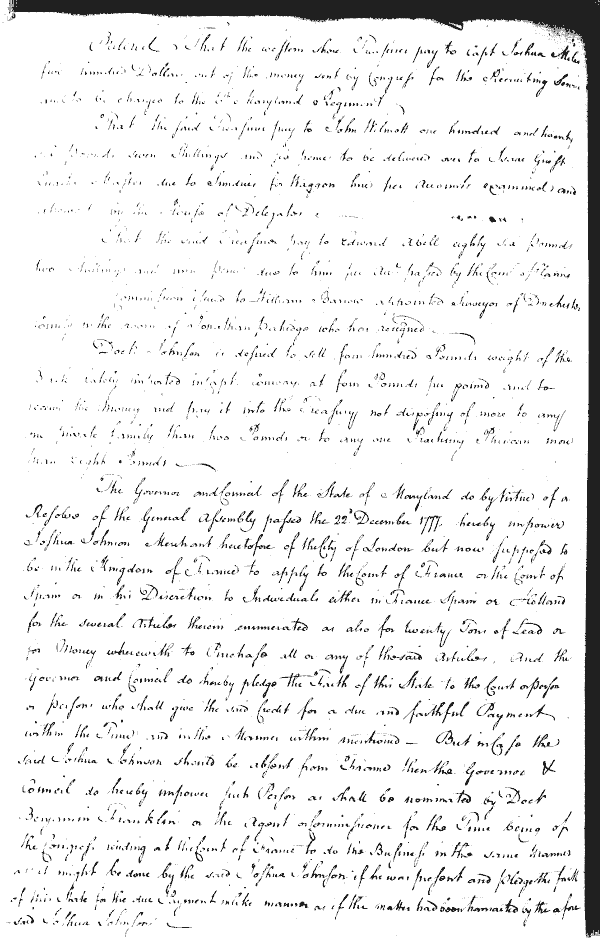 Ordered That the western shore Treasurer pay to Capt Joshua Miles
five hundred Dollars out of the money sent by Congress for the Recruiting Service
and to be charged to the Maryland Regiment
That the said Treasurer pay to John Wilmott one hundred and twenty
six Pounds seven Shillings and six pence to be delivered over to Isaac Griest
Quarter Master due to Sundries for Waggon hire per Accounts examined and
allowed by the House of Delegates
That the said Treasurer pay to Edward Abell eighty six Pounds
two Shillings and nine Pence due to him per Acct passed by the Com of Claims
Commission issued to William Barrow appointed Surveyor of Dorchester
County in the room of Jonathan Patridge who has resigned
Doct Johnson is desired to sell four hundred Pounds weight of the
Bark lately imported in Capt Conway at four Pounds per pound and to
receive the Money and pay it into the Treasury not disposing of more to any
one private family than two Pounds or to any one Practising Phisican more
than eight Pounds
The Governor and Council of the State of Maryland do by Virtue of a
Resolve of the General Assembly passed the 22d December 1777. hereby impower
Joshua Johnson Merchant heretofore of the City of London but now supposed to
be in the Kingdom of France to apply to the Court of France or the Court of
Spain or in his Discretion to Individuals either in France Spain or Holland
for the several Articles therein enumerated as also for twenty Tons of Lead or
for Money wherewith to Purchase all or any of the said Articles, And the
Governor and Council do hereby pledge the Faith of this State to the Court or person
or persons who shall give the said Credit for a due and faithful Payment
within the Time and in the Manner within mentioned — But in Case the
said Joshua Johnson should be absent from France then the Governor &
Council do hereby impower such Person as shall be nominated by Doct
Benjamin Franklin or the Agent or Commissioner for the Time being of
the Congress residing at the Court of France to do the Business in the same manner
as it might be done by the said Joshua Johnson if he was present and pledge the faith
of this State for the due Payment in like manner as if the matter had been transacted by the afore
said Joshua Johnson